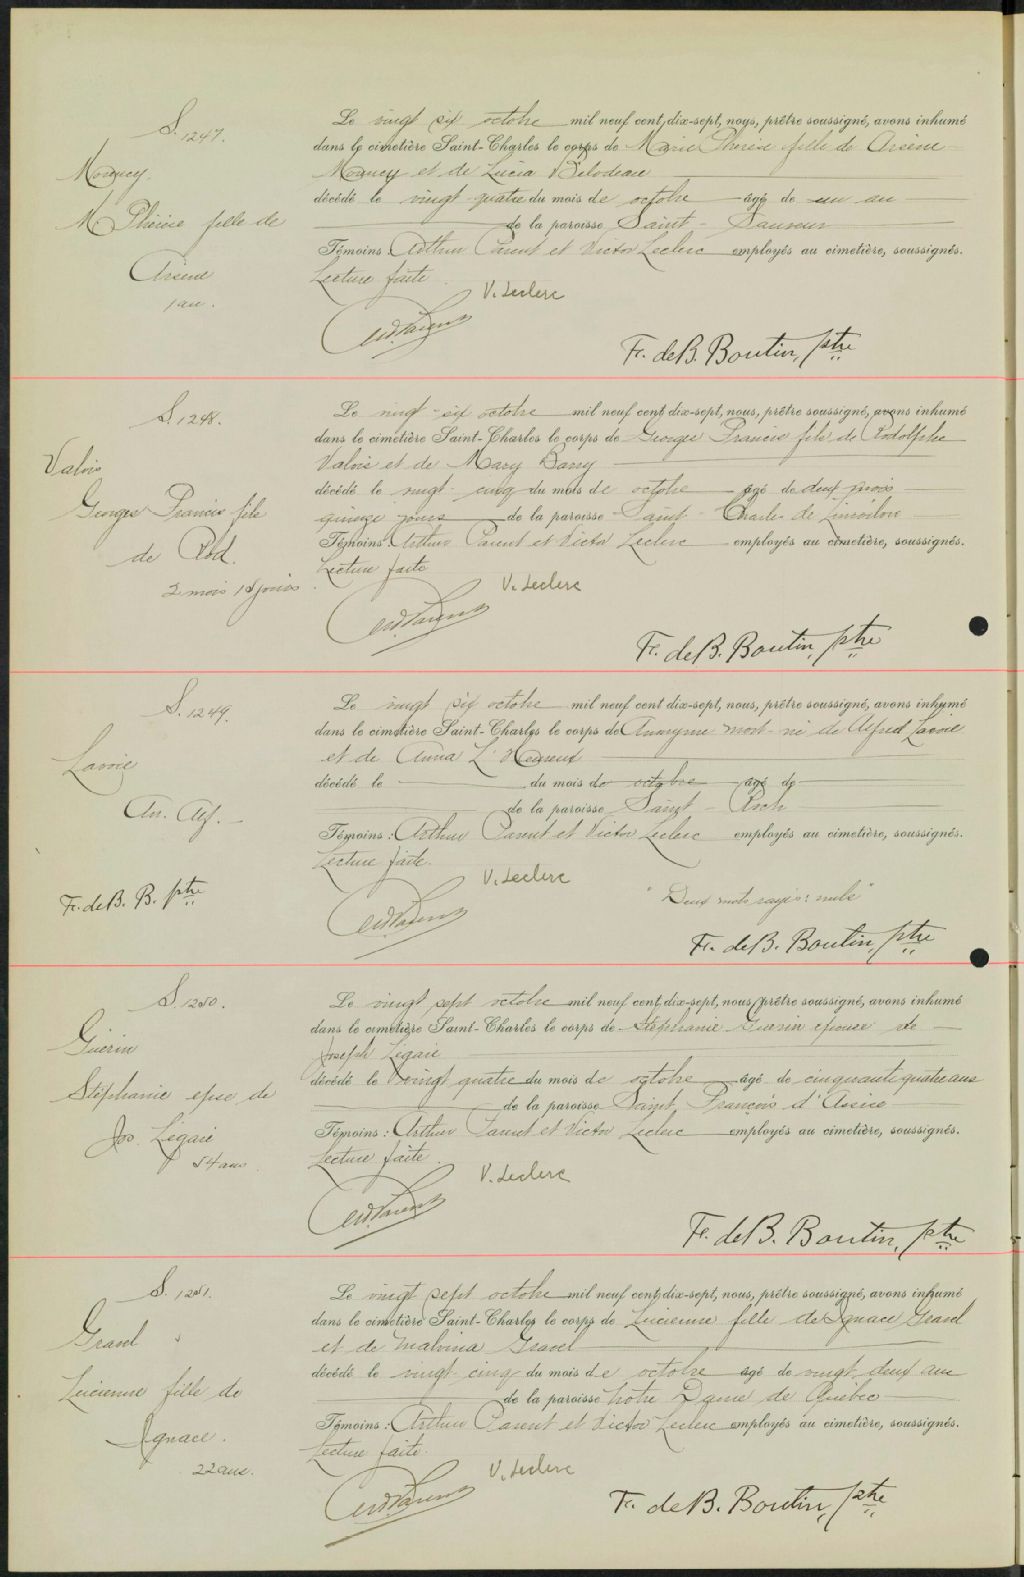 S. 1247.
M. Thérèse fille de
Arsène
1 an.
Le vingt six octobre mil neuf cent dix-sept, nous, prêtre soussigné, avons inhumé
dans le cimetière Saint-Charles le corps de Marie Thérèse fille de Arsène
et de Lucia Bilodeau
décédé le vingt-quatre du mois de octobre âgé de un an
de la paroisse Saint-Sauveur
Témoins Arthur Parent et Victor Leclerc employés au cimetière, soussignés.
Lecture faite.
V. Leclerc
F. de B. Boutin, ptre
S. 1248.
Valois
Georges Francis fils
de Rod.
2 mois 15 jours
Le vingt-six octobre mil neuf cent dix-sept, nous, prêtre soussigné, avons inhumé
dans le cimetière Saint-Charles le corps de Georges Francis fils de Rodolphe
Valois et de Mary Barry
décédé le vingt-cinq du mois de octobre âgé de deux mois
quinze jours de la paroisse Saint-Charles de Limoilou
Témoins: Arthur Parent et Victor Leclerc employés au cimetière, soussignés.
Lecture faite
V. Leclerc
F. de B. Boutin, ptre
S. 1249.
Lavoie
An. Alf.
F. de B. B. ptre
Le vingt six octobre mil neuf cent dix-sept, nous, prêtre soussigné, avons inhumé
dans le cimetière Saint-Charles le corps de Anonyme mort-né de Alfred Lavoie
et de Anna L'Heureux
décédé le du mois de octobre âgé de
de la paroisse Saint-Roch
Témoins: Arthur Parent et Victor Leclerc employés au cimetière, soussignés.
Lecture faite.
V. Leclerc
"Deux mots rayés: nuls"
F. de B. Boutin, ptre
S. 1250.
Guérin
Stéphanie epse de
Jos. Légaré
54 ans.
Le vingt sept octobre mil neuf cent dix-sept, nous, prêtre soussigné, avons inhumé
dans le cimetière Saint-Charles le corps de Stéphanie Guérin épouse de
Joseph Légaré
décédé le vingt quatre du mois de octobre âgé de cinquante quatre ans
de la paroisse Saint François d'Assise
Témoins: Arthur Parent et Victor Leclerc employés au cimetière, soussignés.
Lecture faite.
V. Leclerc
F. de B. Boutin, ptre
S. 1251.
Gravel
Lucienne fille de
Ignace.
22 ans.
Le vingt sept octobre mil neuf cent dix-sept, nous, prêtre soussigné, avons inhumé
dans le cimetière Saint-Charles le corps de Lucienne fille de Ignace Gravel
et de Malvina Gravel
décédé le vingt-cinq du mois de octobre âgé de vingt-deux ans
de la paroisse Notre Dame de Québec
Témoins: Arthur Parent et Victor Leclerc employés au cimetière, soussignés.
Lecture faite.
V. Leclerc
F. de B. Boutin, ptre